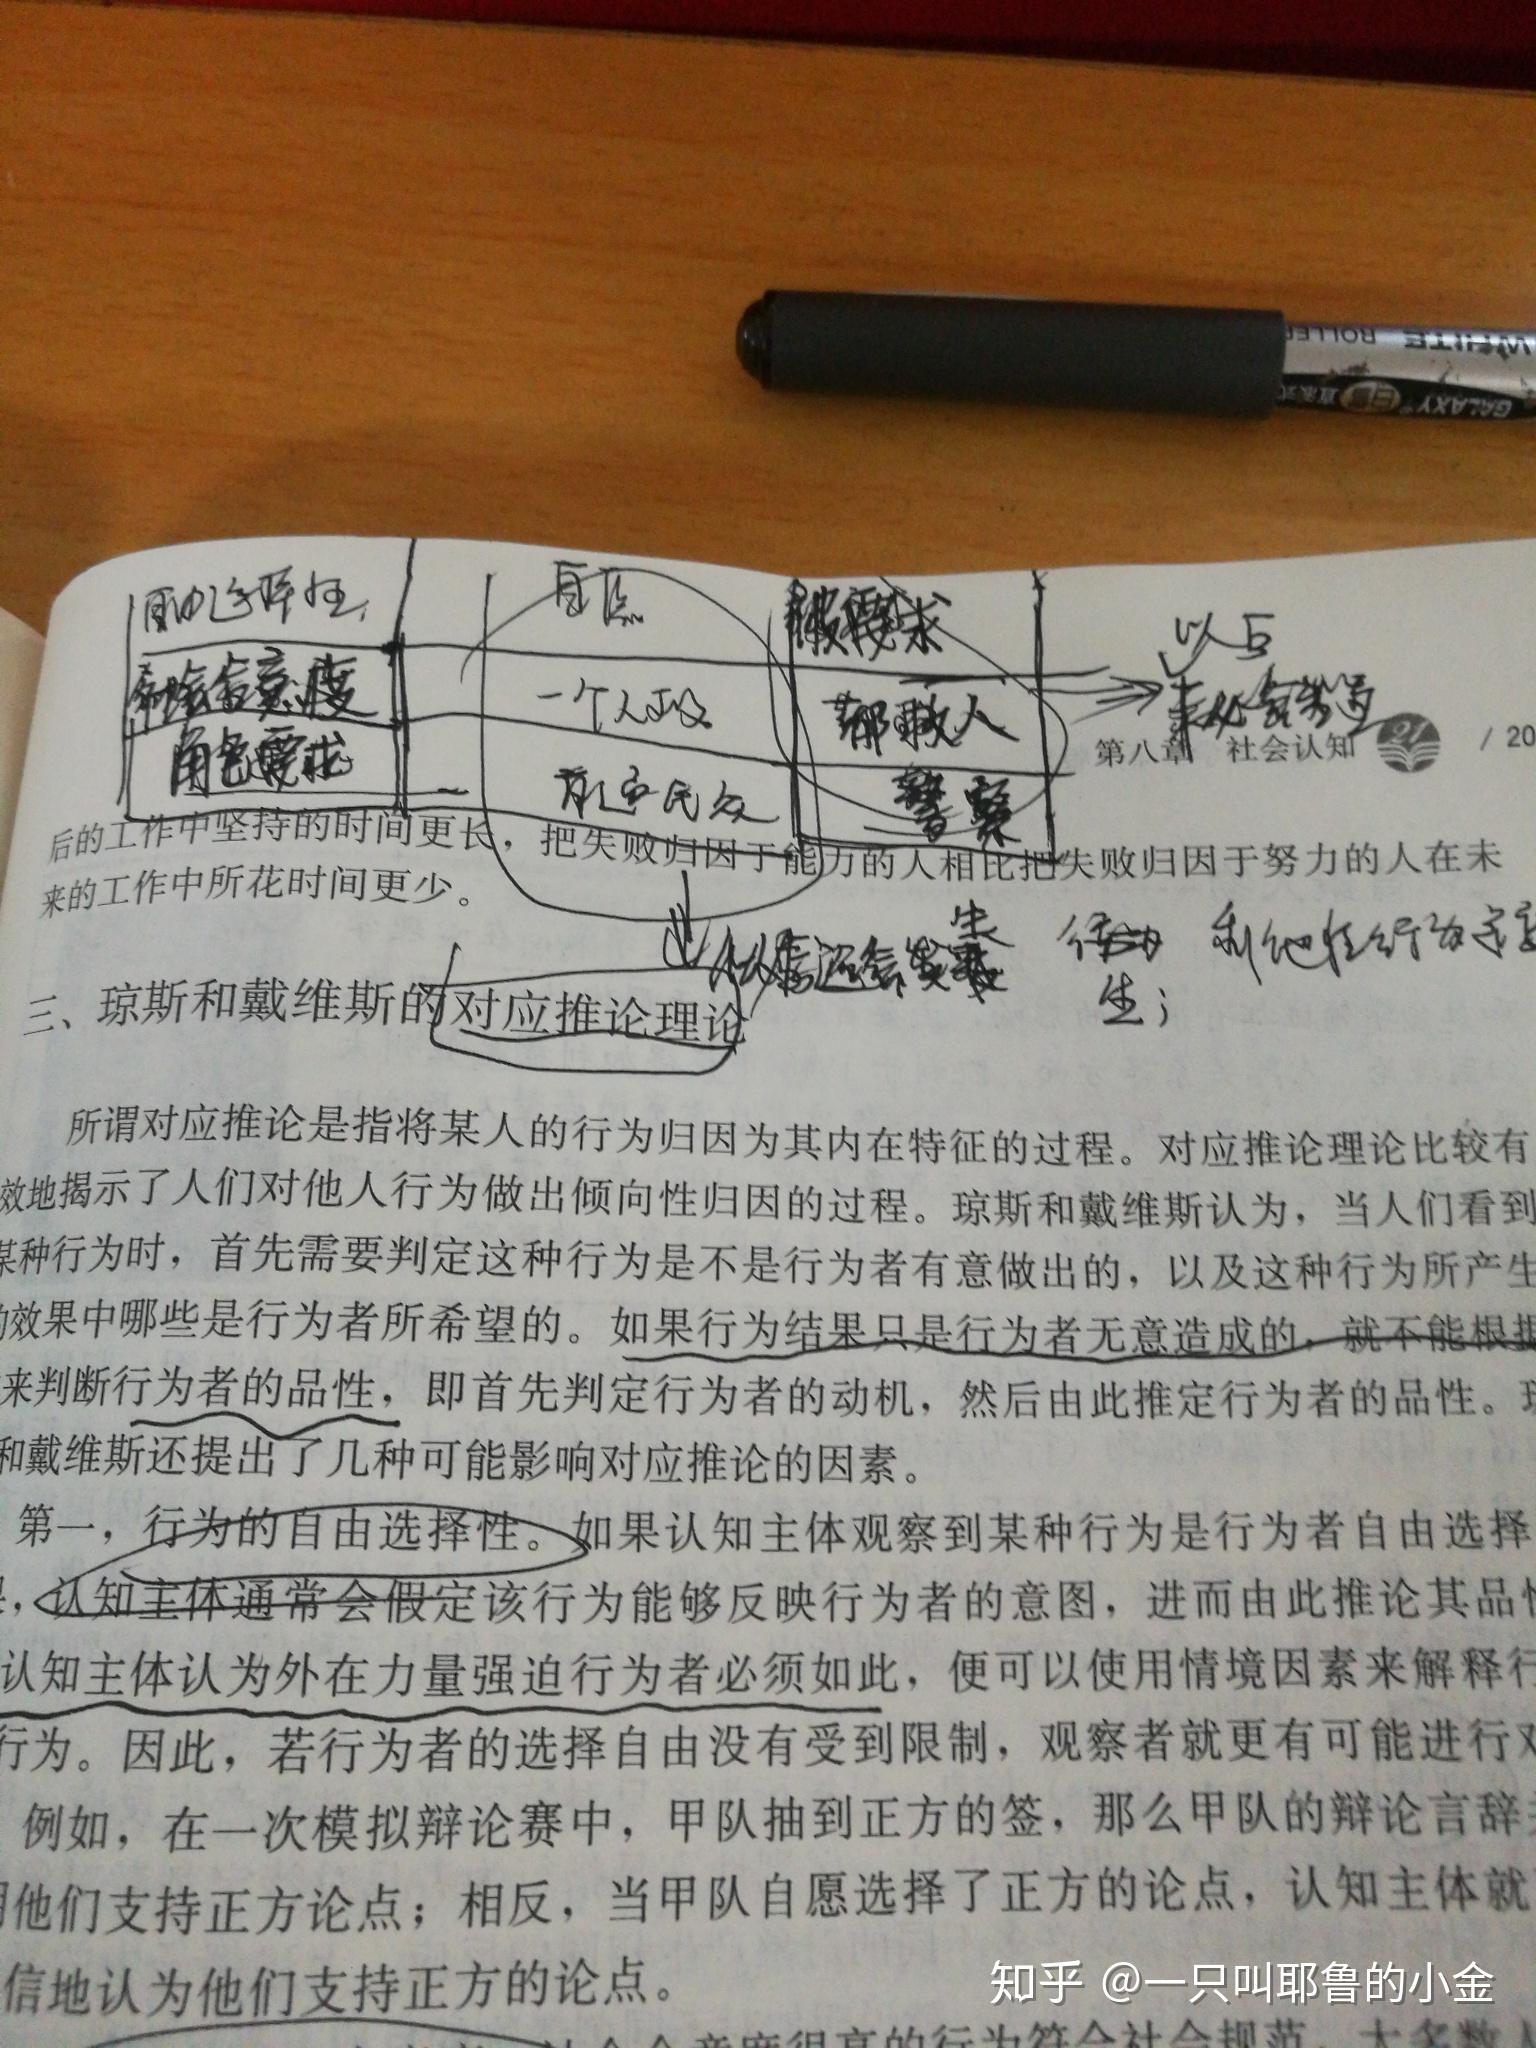 WHITE ROLLER
GALAXY
自由选择性 自愿 被要求
社会合意度 一个人救 都救人
角色要求 普通民众 警察
以后
第八章 社会认知 / 20
后的工作中坚持的时间更长，把失败归因于能力的人相比把失败归因于努力的人在未
来的工作中所花时间更少。
以后还会发生 利他性行为
生；
三、琼斯和戴维斯的对应推论理论
所谓对应推论是指将某人的行为归因为其内在特征的过程。对应推论理论比较有
效地揭示了人们对他人行为做出倾向性归因的过程。琼斯和戴维斯认为，当人们看到
某种行为时，首先需要判定这种行为是不是行为者有意做出的，以及这种行为所产生
的效果中哪些是行为者所希望的。如果行为结果只是行为者无意造成的，就不能根据
来判断行为者的品性，即首先判定行为者的动机，然后由此推定行为者的品性。
和戴维斯还提出了几种可能影响对应推论的因素。
第一，行为的自由选择性。如果认知主体观察到某种行为是行为者自由选择
，认知主体通常会假定该行为能够反映行为者的意图，进而由此推论其品性
认知主体认为外在力量强迫行为者必须如此，便可以使用情境因素来解释行
行为。因此，若行为者的选择自由没有受到限制，观察者就更有可能进行对
例如，在一次模拟辩论赛中，甲队抽到正方的签，那么甲队的辩论言辞
他们支持正方论点；相反，当甲队自愿选择了正方的论点，认知主体就
信地认为他们支持正方的论点。
知乎 @一只叫耶鲁的小金
社会合意度很高的行为符合社会规范，大多数人